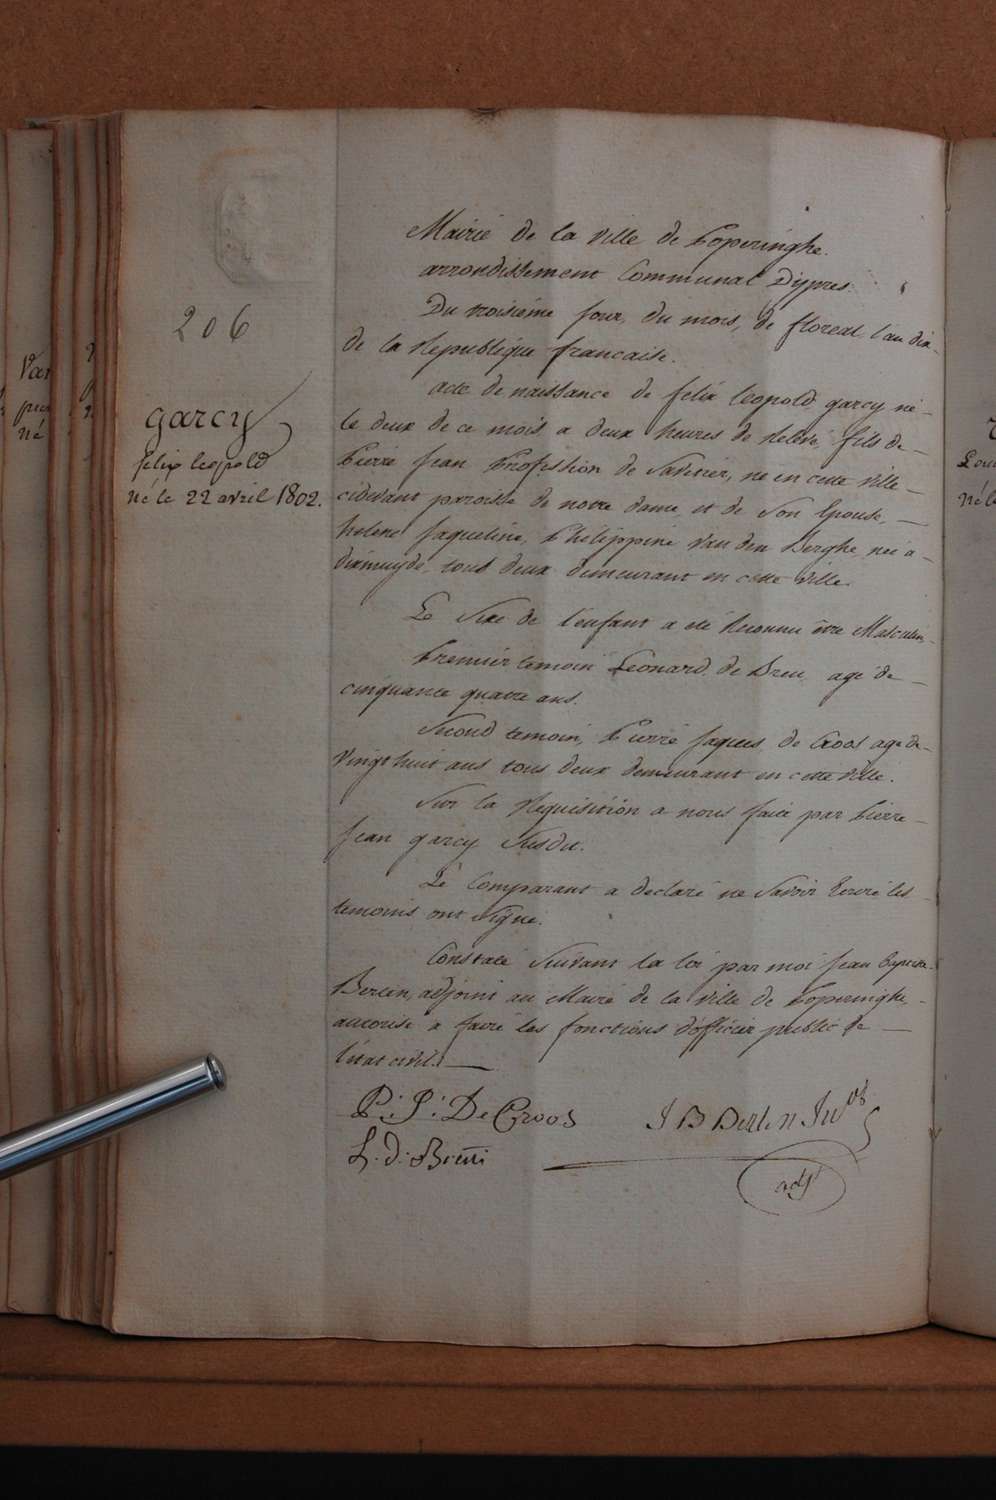 206
garcy
felix leopold
né le 22 avril 1802.
Mairie de la ville de Poperinghe.
arrondissement Communal Dypres.
Du troisiéme jour, du mois, de floreal, l'an dix
de la Republique francaise.
acte de naissance de felix leopold garcy né
le deux de ce mois, a deux heures de Relevé, fils de
Pierre Jean Profession de Savetier, né en cette ville
cidevant paroisse de notre dame, et de Son Epouse,
helene Jaqueline, Philippine Van den Berghe neé a
dixmuyde, tous deux demeurant en cette ville.
Le Sexe de l'enfant a eté Reconnu être Masculin.
Premier temoin Leonard de Breu agé de
cinquante quatre ans.
Second temoin, Pierre Jaques de Croos agé de
vingt huit ans tous deux demeurant en cette ville.
Sur la Requisition a nous faite par Pierre
Jean garcy Susdit.
Le Comparant a declaré ne Savoir Ecrire les
temoins ont Signé.
Constaté Suivant la loi par moi Jean Baptiste
Berten, adjoint au Maire de la Ville de Poperinghe,
autorisé a faire les fonctions d'officier public de
l'état civil.
P: J: De Croos
J B Berten
L. d. Breu
adjt
Van
né
né le